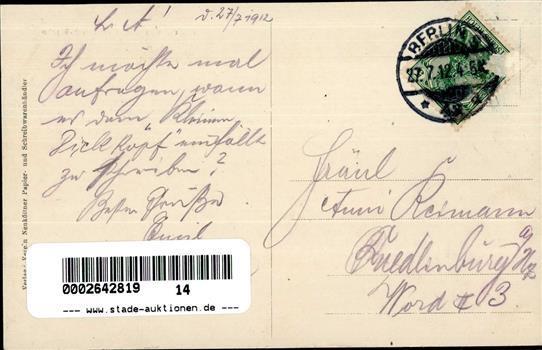 L. A!
d. 27/7 1912
Ich möchte mal
anfragen, wann
es dem "Kleinen
Dickkopf" einfällt
zu schreiben?
Beste Grüße
Emil
Verlag d. Verein Neuköllner Papier- und Schreibwarenhändler
BERLIN
27.7.12.4-5
Fräul
Anni Reimann
Quedlinburg a/Hz
Word # 3
0002642819 14
--- www.stade-auktionen.de ---